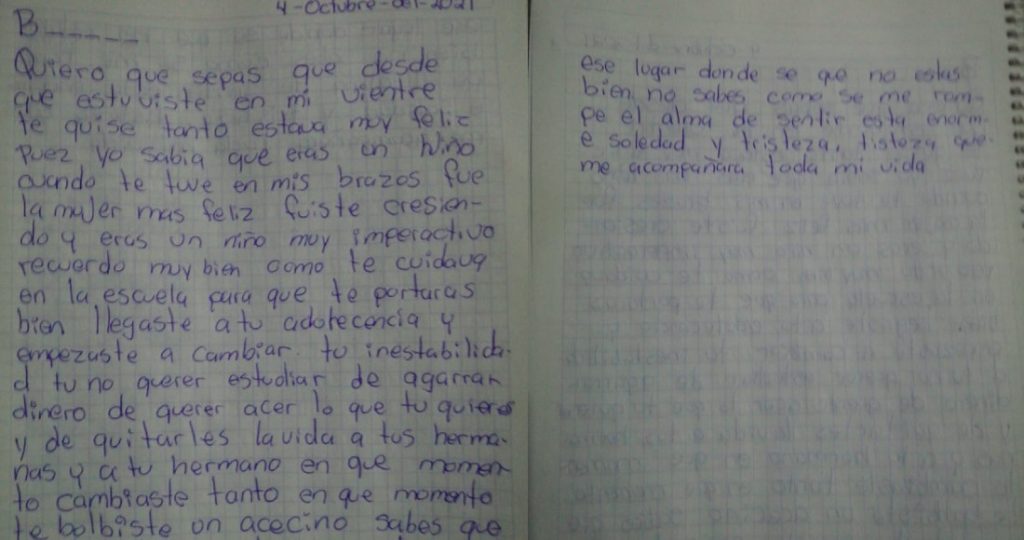 4-Octubre-del-2021
B_____
Quiero que sepas que desde
que estuviste en mi vientre
te quise tanto estava muy feliz
Puez yo sabia que eras un Niño
cuando te tuve en mis brazos fue
la mujer mas feliz fuiste cresien-
do y eras un niño muy imperactivo
recuerdo muy bien como te cuidava
en la escuela para que te portaras
bien llegaste a tu adolecencia y
empezaste a cambiar. tu inestabilida-
d tu no querer estudiar de agarrar
dinero de querer acer lo que tu quieres
y de quitarles la vida a tus herma-
nas y a tu hermano en que momen-
to cambiaste tanto en que momento
te bolbiste un acecino sabes que
ese lugar donde se que no estas
bien no sabes como se me rom-
pe el alma de sentir esta enorm-
e soledad y tristeza, tisteza que
me acompañara toda mi vida